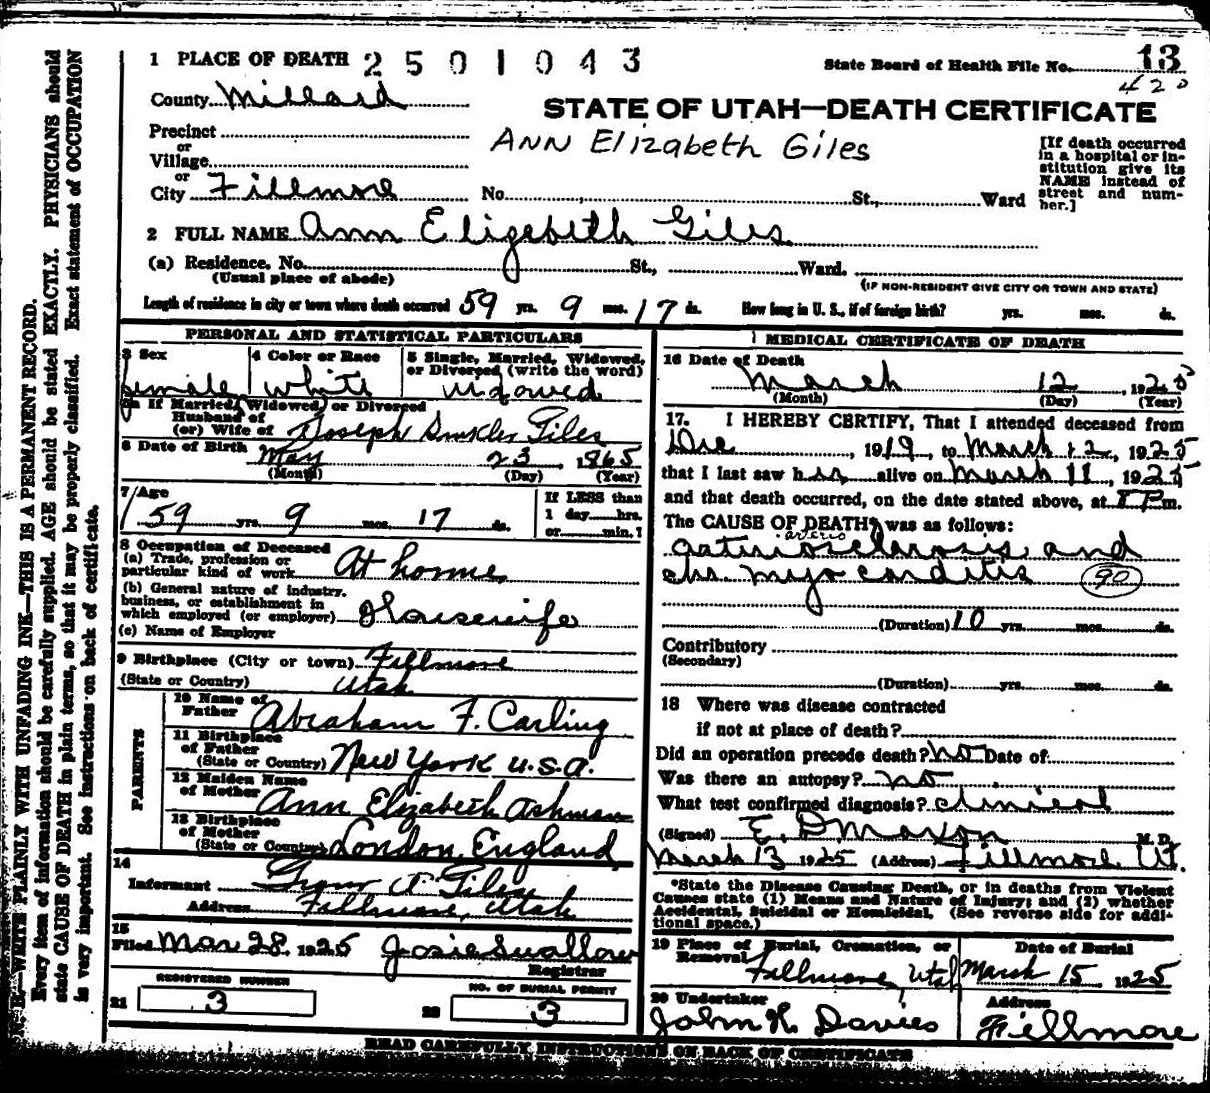 1 PLACE OF DEATH 2501043
State Board of Health File No. 13
420
County Millard
STATE OF UTAH—DEATH CERTIFICATE
Precinct
or
Village
or
City Fillmore No. St., Ward
Ann Elizabeth Giles
[If death occurred
in a hospital or in-
stitution give its
NAME instead of
street and num-
ber.]
2 FULL NAME Ann Elizebeth Giles
(a) Residence, No. St., Ward.
(Usual place of abode) (IF NON-RESIDENT GIVE CITY OR TOWN AND STATE)
Length of residence in city or town where death occurred 59 yrs. 9 mos. 17 ds. How long in U. S., if of foreign birth? yrs. mos. ds.
PERSONAL AND STATISTICAL PARTICULARS
3 Sex
female
4 Color or Race
white
5 Single, Married, Widowed,
or Divorced (write the word)
widowed
If Married, Widowed, or Divorced
Husband of
(or) Wife of Joseph Giles
6 Date of Birth May 23 1865
(Month) (Day) (Year)
7 Age
59 yrs. 9 mos. 17 ds.
If LESS than
1 day hrs.
or min.
8 Occupation of Deceased
(a) Trade, profession or
particular kind of work At home
(b) General nature of industry,
business, or establishment in
which employed (or employer) Housewife
(c) Name of Employer
9 Birthplace (City or town) Fillmore
(State or Country) Utah
PARENTS
10 Name of
Father Abraham F. Carling
11 Birthplace
of Father
(State or Country) New York U.S.A.
12 Maiden Name
of Mother Ann Elizabeth Ashman
13 Birthplace
of Mother
(State or Country) London, England
14
Informant Giles
Address Fillmore, Utah
15
Filed Mar 28, 1925 Josie Swallow
Registrar
REGISTERED NUMBER
21 3
NO. OF BURIAL PERMIT
22 3
MEDICAL CERTIFICATE OF DEATH
16 Date of Death
March 12 1925
(Month) (Day) (Year)
17. I HEREBY CERTIFY, That I attended deceased from
Dec, 1919, to March 12, 1925
that I last saw her alive on March 11, 1925
and that death occurred, on the date stated above, at P m.
The CAUSE OF DEATH* was as follows:
arterio
and
chr. myocarditis 90
(Duration) 10 yrs. mos. ds.
Contributory
(Secondary)
(Duration) yrs. mos. ds.
18 Where was disease contracted
if not at place of death?
Did an operation precede death? no Date of
Was there an autopsy? no
What test confirmed diagnosis? clinical
(Signed) E. D Maxon M. D.
March 13 1925 (Address) Fillmore Ut.
*State the Disease Causing Death, or in deaths from Violent
Causes state (1) Means and Nature of Injury; and (2) whether
Accidental, Suicidal or Homicidal, (See reverse side for addi-
tional space.)
19 Place of Burial, Cremation, or
Removal
Fillmore, Utah
Date of Burial
March 15 1925
20 Undertaker
John R. Davies
Address
Fillmore
READ CAREFULLY INSTRUCTIONS ON BACK OF CERTIFICATE
N. B. WRITE PLAINLY WITH UNFADING INK—THIS IS A PERMANENT RECORD.
Every item of information should be carefully supplied. AGE should be stated EXACTLY. PHYSICIANS should
state CAUSE OF DEATH in plain terms, so that it may be properly classified. Exact statement of OCCUPATION
is very important. See instructions on back of certificate.